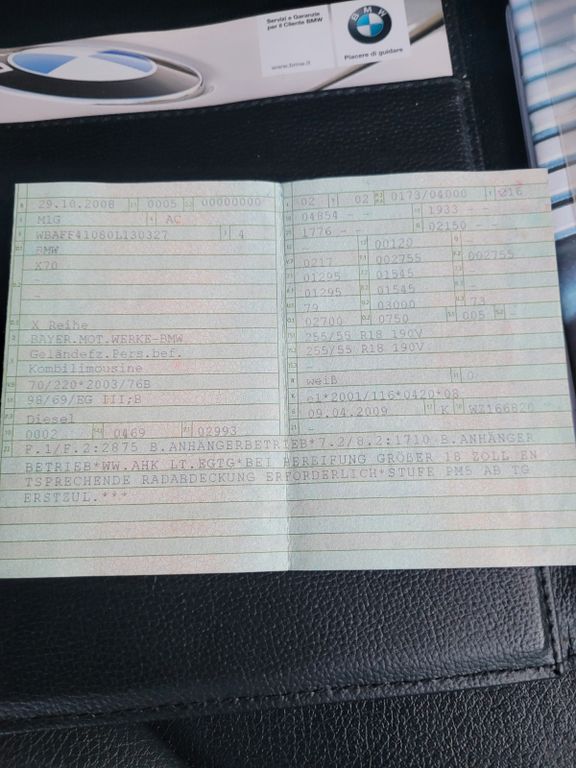 Servizi e Garanzie
per il Cliente BMW
BMW
www.bmw.it
Piacere di guidare
29.10.2008 0005 00000000
M1G AC
WBAFF41080L130327 4
BMW
X70
-
-
X Reihe
BAYER.MOT.WERKE-BMW
Geländefz.Pers.bef.
Kombilimousine
70/220*2003/76B
98/69/EG III;B
Diesel
0002 0469 02993
02 02 0173/04000 016
04854 - - 1933 - -
1776 - - 02150
00120 -
0217 002755 002755
01295 01545 -
01295 01545 -
79 03000 73
02700 0750 005 -
255/55 R18 190V
255/55 R18 190V
-
weiß 0
e1*2001/116*0420*08
09.04.2009 K WZ166820
F.1/F.2:2875 B.ANHÄNGERBETRIEB*7.2/8.2:1710 B.ANHÄNGER
BETRIEB*WW.AHK LT.EGTG*BEI BEREIFUNG GRÖßER 18 ZOLL EN
TSPRECHENDE RADABDECKUNG ERFORDERLICH*STUFE PM5 AB TG
ERSTZUL.***